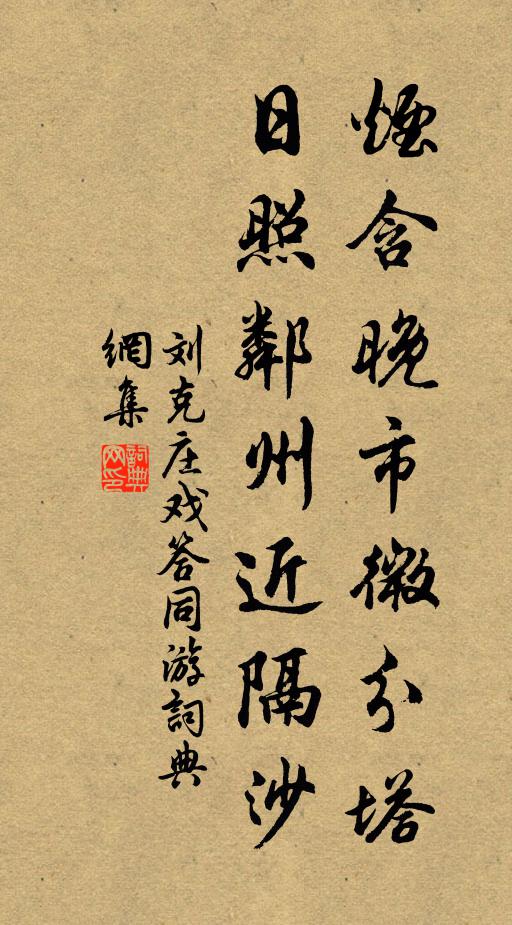 煙含晚市微分塔
日照鄰州近隔沙
刘克庄戏答同游詞典
網集
詞典
网印